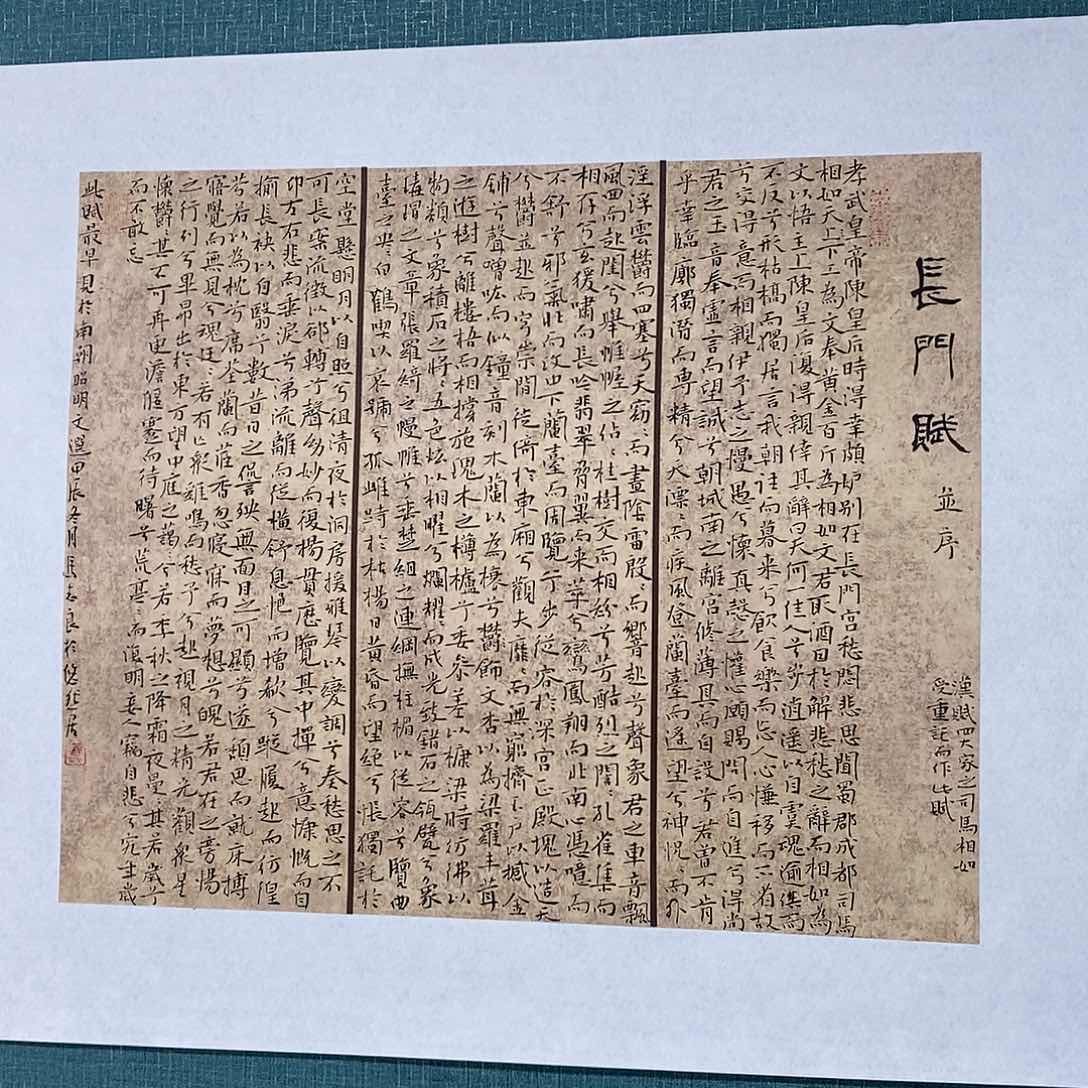 長門賦
並序
漢賦四大家之司馬相如
受重託而作此賦
孝武皇帝陳皇后時得幸頗妒別在長門宮愁悶悲思聞蜀郡成都司馬
相如天下工為文奉黃金百斤為相如文君取酒因於解悲愁之辭而相如為
文以悟主上陳皇后復得親倖其辭曰夫何一佳人兮步逍遙以自虞魂逾佚而
不反兮形枯槁而獨居言我朝往而暮來兮飲食樂而忘人心慊移而不省故
兮交得意而相親伊予志之慢愚兮懷真愨之懽心願賜問而自進兮得尚
君之玉音奉虛言而望誠兮期城南之離宮修薄具而自設兮君曾不肯
乎幸臨廓獨潛而專精兮天漂〻而疾風登蘭臺而遙望兮神怳〻而外
淫浮雲鬱而四塞兮天窈〻而晝陰雷殷〻而響起兮聲象君之車音飄
風迴而起閨兮舉帷幄之襜〻桂樹交而相紛兮芳酷烈之誾〻孔雀集而
相存兮玄猨嘯而長吟翡翠脅翼而來萃兮鸞鳳翔而北南心憑噫而
不舒兮邪氣壯而攻中下蘭臺而周覽兮步從容於深宮正殿塊以造天
兮鬱並起而穹崇間徙倚於東廂兮觀夫靡〻而無窮擠玉戶以撼金
鋪兮聲噌吰而似鐘音刻木蘭以為榱兮鬱飾文杏以為梁羅丰茸
之遊樹兮離樓梧而相撐施瑰木之欂櫨兮委參差以槺梁時彷彿以
物類兮象積石之將〻五色炫以相曜兮爛耀〻而成光緻錯石之瓴甓兮象
瑇瑁之文章張羅綺之幔帷兮垂楚組之連綱撫柱楣以從容兮覽曲
臺之央〻白鶴噭以哀號兮孤雌跱於枯楊日黃昏而望絕兮悵獨託於
空堂懸明月以自照兮徂清夜於洞房援雅琴以變調兮奏愁思之不
可長案流徵以卻轉兮聲幼妙而復揚貫歷覽其中操兮意慷慨而自
卬左右悲而垂淚兮涕流離而從橫舒息悒而增欷兮蹝履起而彷徨
揄長袂以自翳兮數昔日之諐殃無面目之可顯兮遂頹思而就床摶
芬若以為枕兮席荃蘭而茝香忽寢寐而夢想兮魄若君在之旁惕
寤覺而無見兮魂迋〻若有亡眾雞鳴而愁予兮起視月之精光觀眾星
之行列兮畢昴出於東方望中庭之藹〻兮若季秋之降霜夜曼〻其若歲兮
懷鬱其不可再更澹偃蹇而待曙兮荒亭〻而復明妾人竊自悲兮究年歲
而不敢忘
此賦最早見於南朝昭明文選甲辰冬月